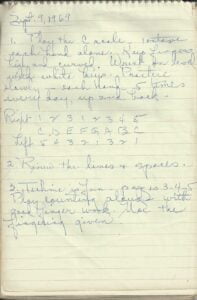 Sept. 9, 1969
1. Play the C scale - 1 octave
each hand alone. Keep fingers
high and curved. Work on
under white keys. Practice
slowly - each hand 5 times
every day, up and back.
Right 1 2 3 1 2 3 4 5
C D E F G A B C
Left 5 4 3 2 1 3 2 1
2. Review the lines & spaces.
3. Technic is Fun - pages 3-4-5
Play counting aloud with
good finger work. Use the
fingering given.